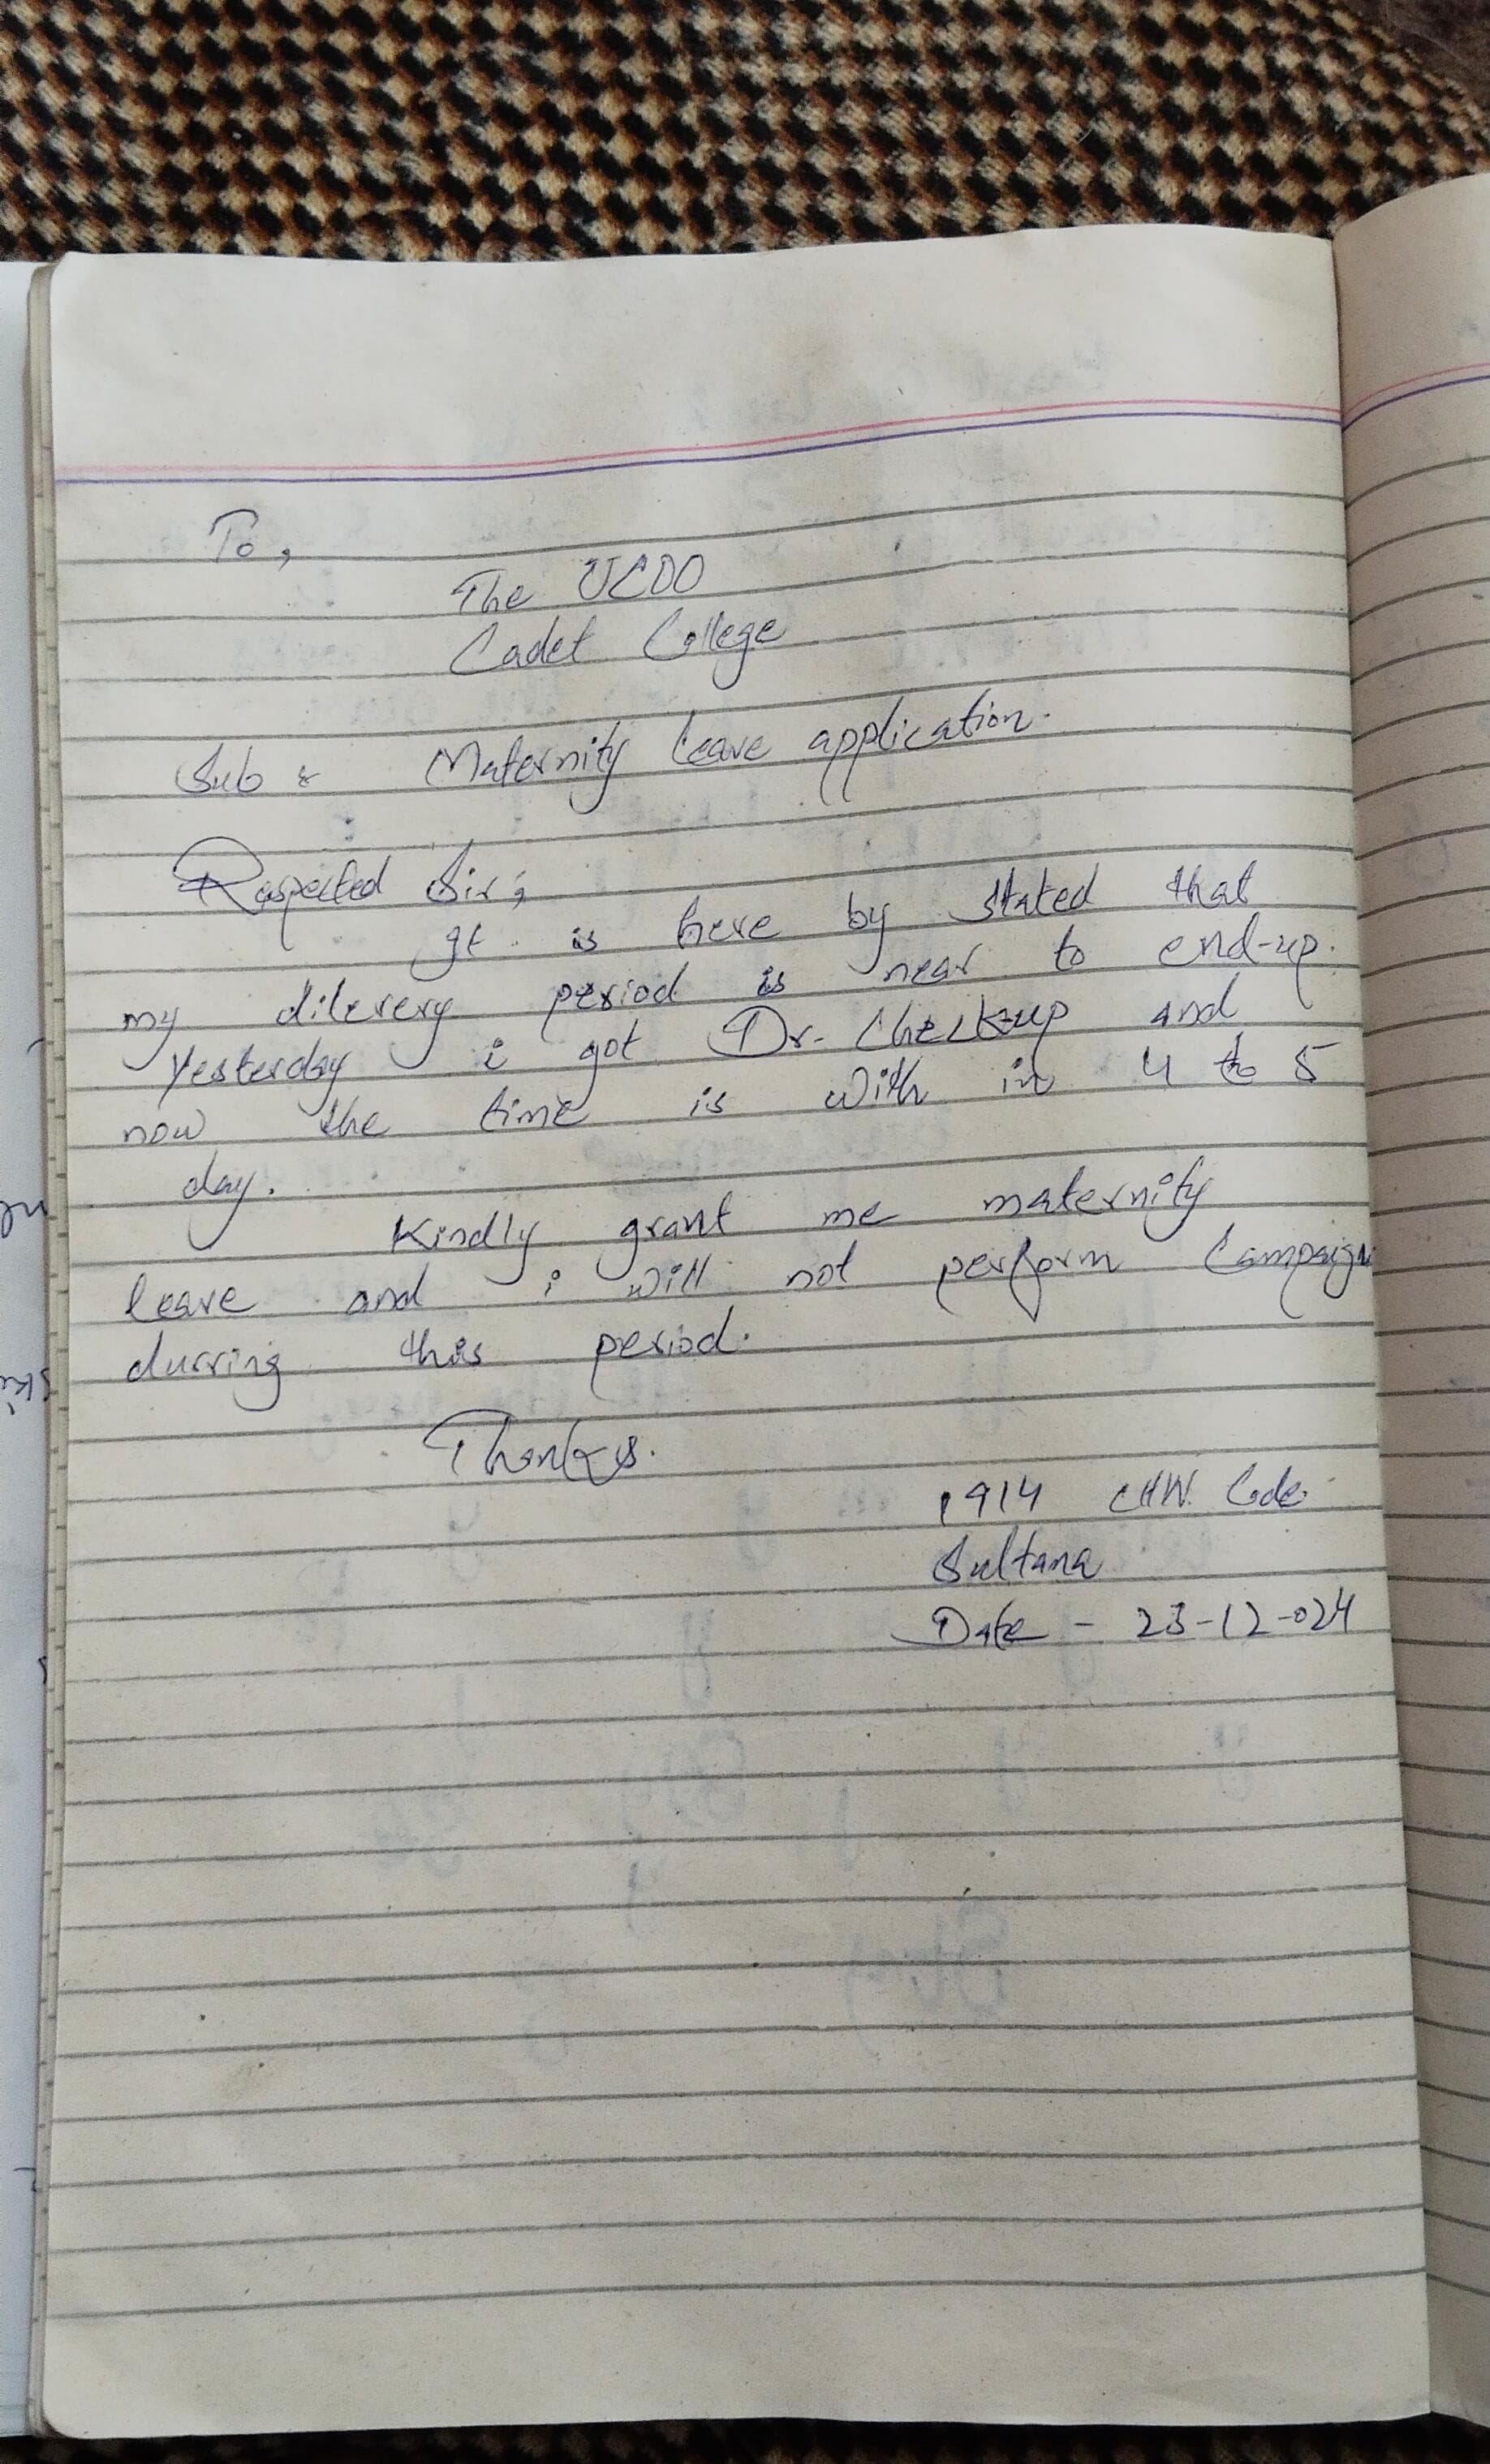 To,
The UCDO
Cadet College
Sub : Maternity leave application.
Respected Sir;
It is here by stated that
my dilevery period is near to end-up.
Yesterday i got Dr. Checkup and
now the time is with in 4 to 5
day.
Kindly grant me maternity
leave and i will not perform Campaign
durring this period.
Thanks.
1914 CHW Code
Sultana
Date - 23-12-024